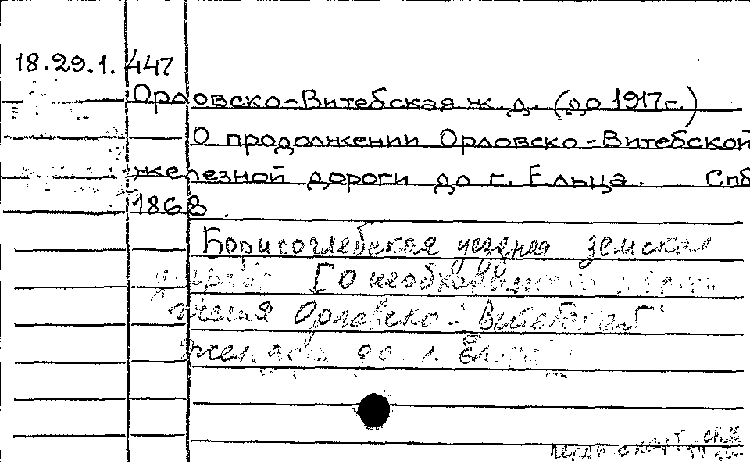 18.29.1.447
Орловско-Витебская ж.д. (до 1917г.)
О продолжении Орловско-Витебской
железной дороги до г. Ельца. Спб
1868
Борисоглебская уездная земская
управа [О необходимости
жения Орловско-Витебской
желез. до г.